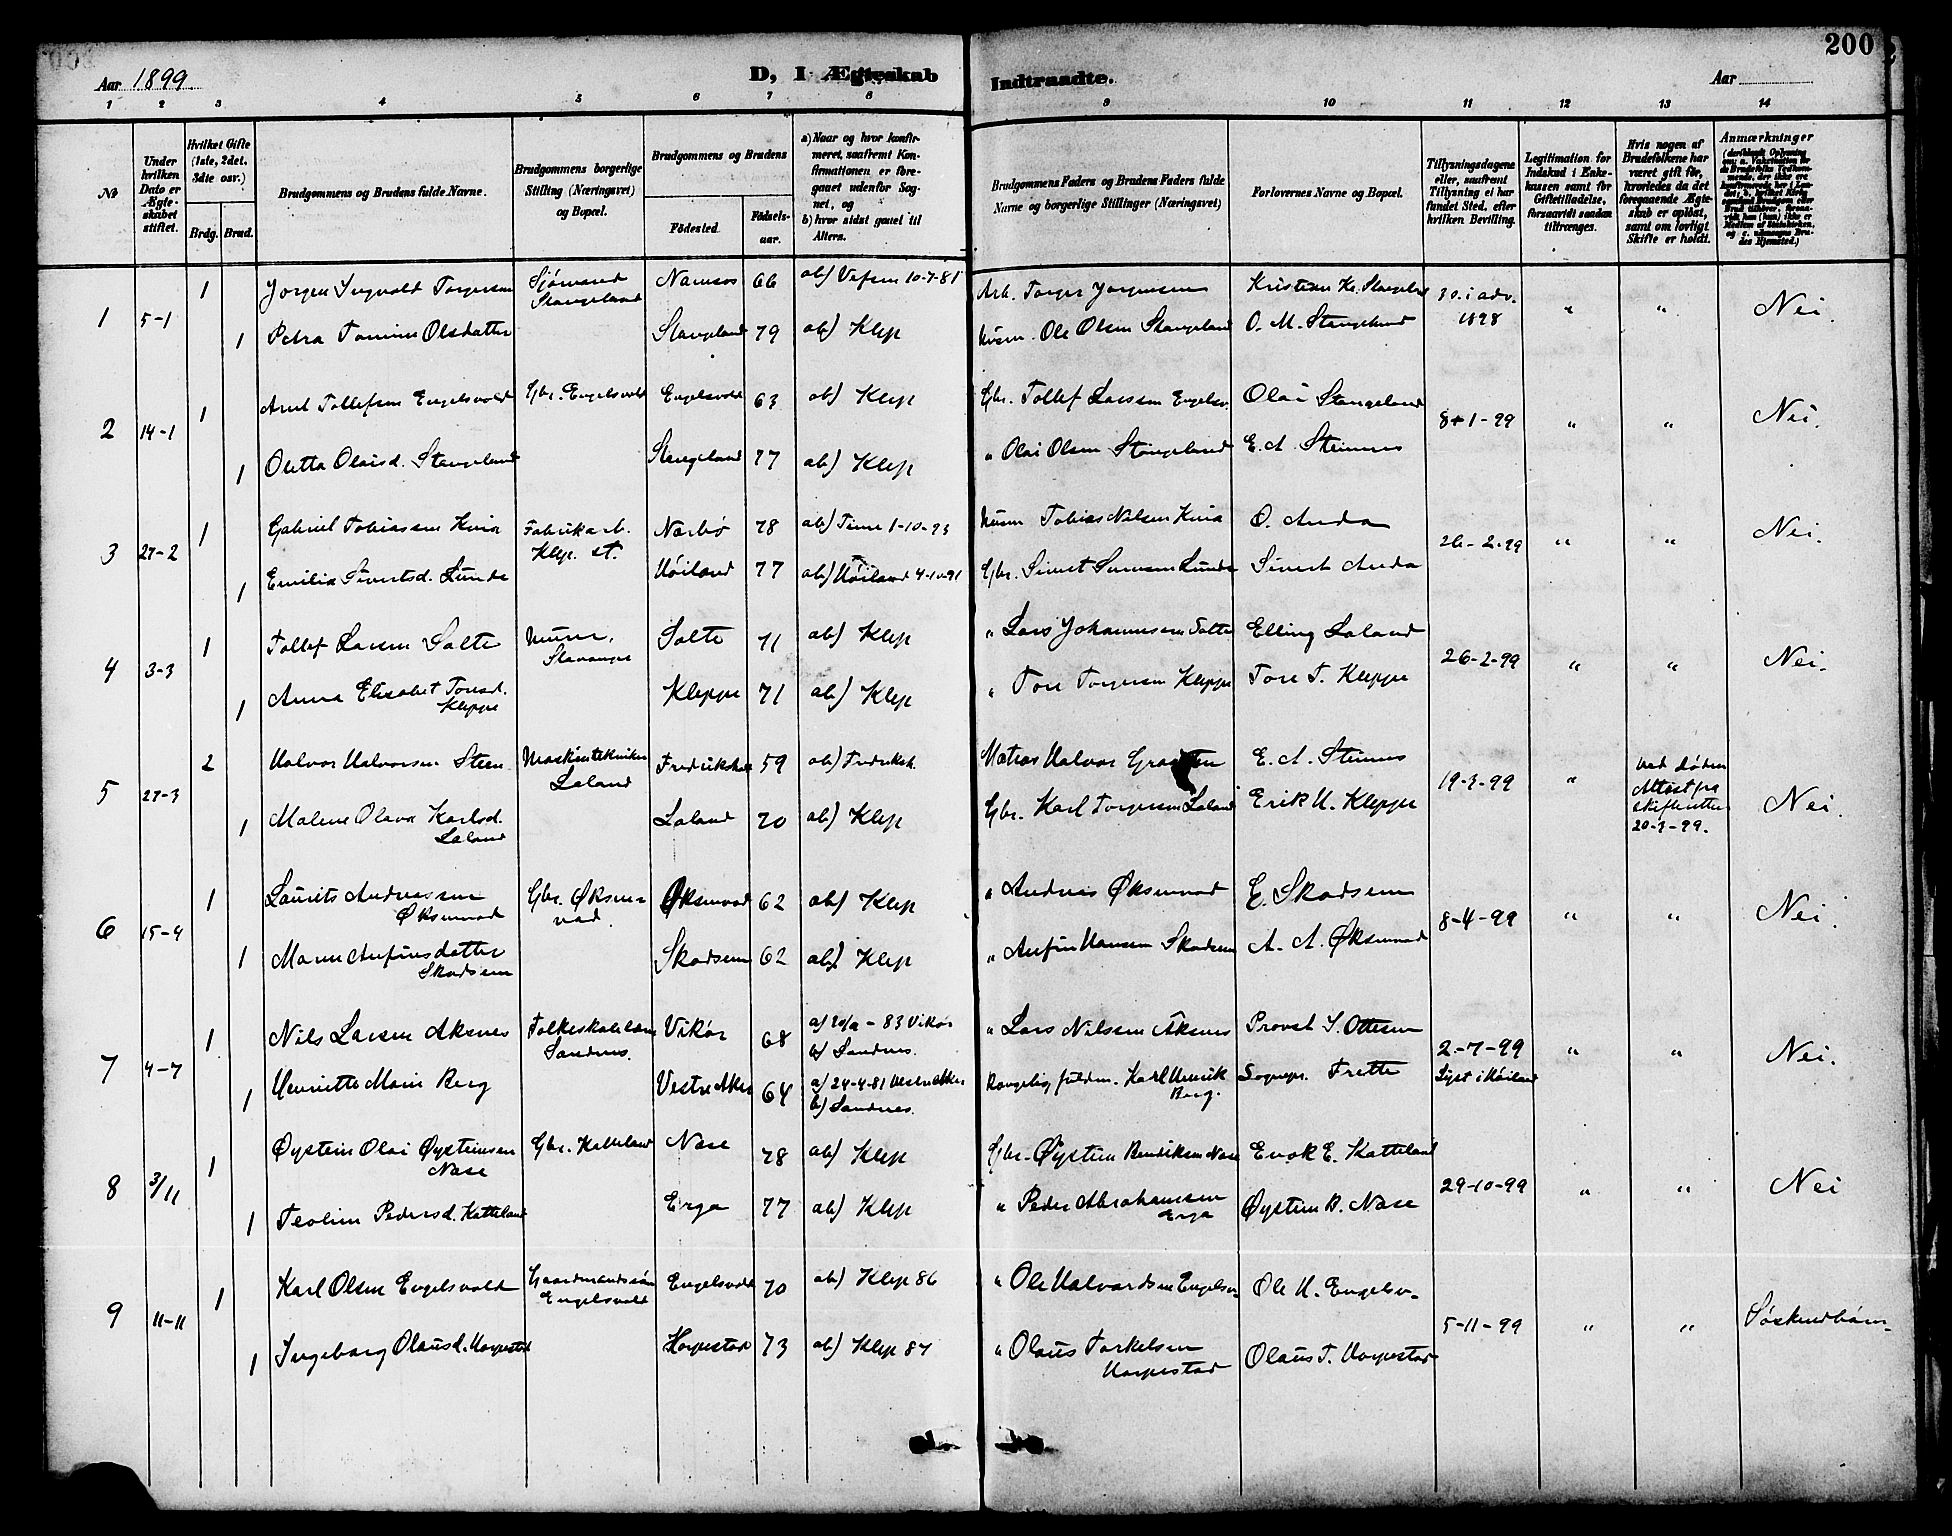 200
Aar 1899.
D, I Ægteskab Indtraadte.
Aar
1 2 3 4 5 6 7 8 9 10 11 12 13 14
№
Under hvilken Dato er Ægteskabet stiftet.
Hvilket Gifte (1ste, 2det, 3die osv.)
Brdg. Brud.
Brudgommens og Brudens fulde Navne.
Brudgommens borgerlige Stilling (Næringsvei) og Bopæl.
Brudgommens og Brudens
Födested. Födsels-aar.
a) Naar og hvor konfirmeret, saafremt Konfirmationen er foregaaet udenfor Sognet, og
b) hvor sidst gaaet til Alters.
Brudgommens Faders og Brudens Faders fulde Navne og borgerlige Stillinger (Næringsvei)
Forlovernes Navne og Bopæl.
Tillysningsdagene eller, saafremt Tillysning ei har fundet Sted, efter hvilken Bevilling.
Legitimation for Indskud i Enkekassen samt for Giftetilladelse, forsaavidt saadan tiltrænges.
Hvis nogen af Brudefolkene har været gift för, hvorledes da det foregaaende Ægteskab er oplöst, samt om lovligt Skifte er holdt.
Anmærkninger
1 5-1 1 Jørgen Ingvald Torgersen Sjømand Stangeland Namsos 66 ab) Vefsen 10-7-81 Arb. Torger Jørgensen Kristian K. Stangeland 3 s. i adv. 1898 " " Nei.
1 Petra Tomine Olsdatter Stangeland 79 ab) Klep Husm. Ole Olsen Stangeland O. M. Stangeland
2 14-1 1 Tollefsen Engelsvold Gbr. Engelsvold Engelsvold 63 ab) Klep Gbr. Tollef Larssen Engelsv. Olai Stangeland 8-1-99 " " Nei.
1 Oletta Olaisd. Stangeland Stangeland 77 ab) Klep " Olai Olsen Stangeland E. A. Steinnes
3 27-2 1 Gabriel Tobiassen Kvia Fabrikarb. Klep st. Nærbø 78 ab) Time 1-10-93 Husm Tobias Nilsen Kvia O. Anda 26-2-99 " " Nei.
1 Emilia Sivertsd. Lunde Høiland 77 ab) Høiland 4-10-91 Gbr. Sivert Lunde Sivert Anda
4 3-3 1 Tollef Larsen Salte Stavanger Salte 71 ab) Klep " Lars Johannesen Salte Elling Laland 26-2-99 " " Nei.
1 Anna Elisabet Toresd. Kleppe Kleppe 71 ab) Klep " Tore Torgersen Kleppe Tore T. Kleppe
5 27-3 2 Halvor Halvorsen Steen Maskintekniker Laland Fredrikshald 59 ab) Fredriksh. Matros Halvor E. A. Steinnes 19-3-99 " Ved døden Attest fra skifteretten 20-3-99. Nei.
1 Malene Olava Karlsd. Laland Laland 70 ab) Klep Gbr. Karl Torgersen Laland Erik H. Kleppe
6 15-4 1 Laurits Andreassen Øksnevad Gbr. Øksnevad Øksnevad 62 ab) Klep " Andreas Øksnevad E. Skadsem 8-4-99 " " Nei.
1 Maren Anfinsdatter Skadsem Skadsem 62 ab) Klep " Anfin Hansen Skadsem A. A. Øksnevad
7 4-7 1 Nils Larsen Aksnes Folkeskolelærer Sandnes. Vikør 68 83 Vikør b) Sandnes. " Lars Nilssen Aksnes Provst S. Ottesen 2-7-99 Lyst i Høiland " " Nei.
1 Henriette Marie Berg Vestre Aker 64 a) 24-4-81 Vestre Aker b) Sandnes. Karl Henrik Berg. Sognepr. Frette
8 3/11 1 Øystein Olai Øysteinsen Nase Gbr. Katteland Nase 78 ab) Klep Gbr. Øystein Bendiksen Nase Enok E. Katteland 29-10-99 " " Nei
1 Teoline Pedersd. Katteland Erga 77 ab) Klep " Peder Abrahamsen Erga Øystein B. Nase
9 11-11 1 Karl Olsen Engelsvold Gaardmandssøn Engelsvold Engelsvold 70 ab) Klep 86 " Ole Halvardsen Engelsv. Ole H. Engelsv. 5-11-99 " " Søskendbørn.
1 Ingeborg Olausd. Horpestad Horpestad 73 ab) Klep 87 " Olaus Torkelsen Horpestad Olaus T. Horpestad